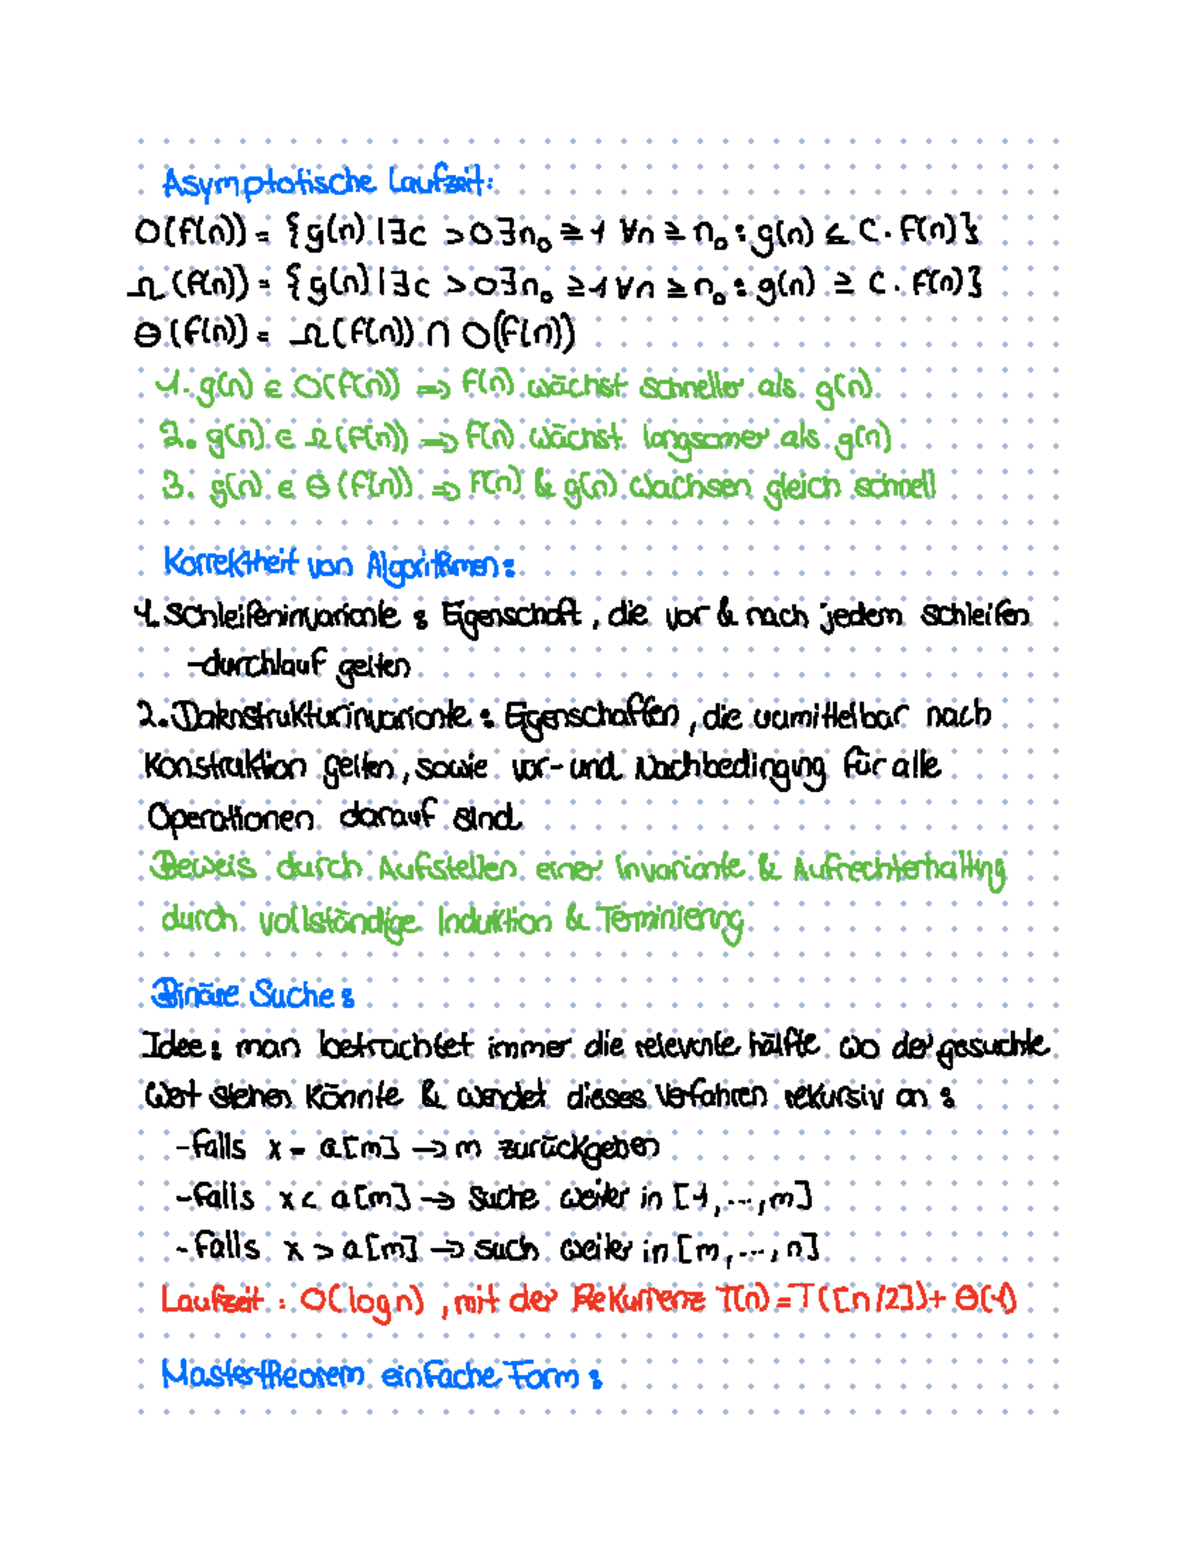 Asymptotische Laufzeit:
O(f(n)) = {g(n) | ∃c > 0 ∃n₀ ≥ 1 ∀n ≥ n₀ : g(n) ≤ c · f(n)}
Ω(f(n)) = {g(n) | ∃c > 0 ∃n₀ ≥ 1 ∀n ≥ n₀ : g(n) ≥ c · f(n)}
Θ(f(n)) = Ω(f(n)) ∩ O(f(n))
1. g(n) ∈ O(f(n)) ⇒ f(n) wächst schneller als g(n)
2. g(n) ∈ Ω(f(n)) ⇒ f(n) wächst langsamer als g(n)
3. g(n) ∈ Θ(f(n)) ⇒ f(n) & g(n) wachsen gleich schnell
Korrektheit von Algorithmen:
1. Schleifeninvariante : Eigenschaft, die vor & nach jedem schleifen
-durchlauf gelten
2. Datenstrukturinvariante : Eigenschaften, die unmittelbar nach
Konstruktion gelten, sowie vor- und Nachbedingung für alle
Operationen darauf sind
Beweis durch Aufstellen einer Invariante & Aufrechterhaltung
durch vollständige Induktion & Terminierung
Binäre Suche:
Idee: man betrachtet immer die relevante hälfte wo der gesuchte
Wert stehen könnte & wendet dieses Verfahren rekursiv an :
-falls x = a[m] → m zurückgeben
-falls x < a[m] → suche weiter in [1,...,m]
-falls x > a[m] → such weiter in [m,...,n]
Laufzeit : O(log n) , mit der Rekurrenz T(n) = T([n/2]) + Θ(1)
Mastertheorem einfache Form :